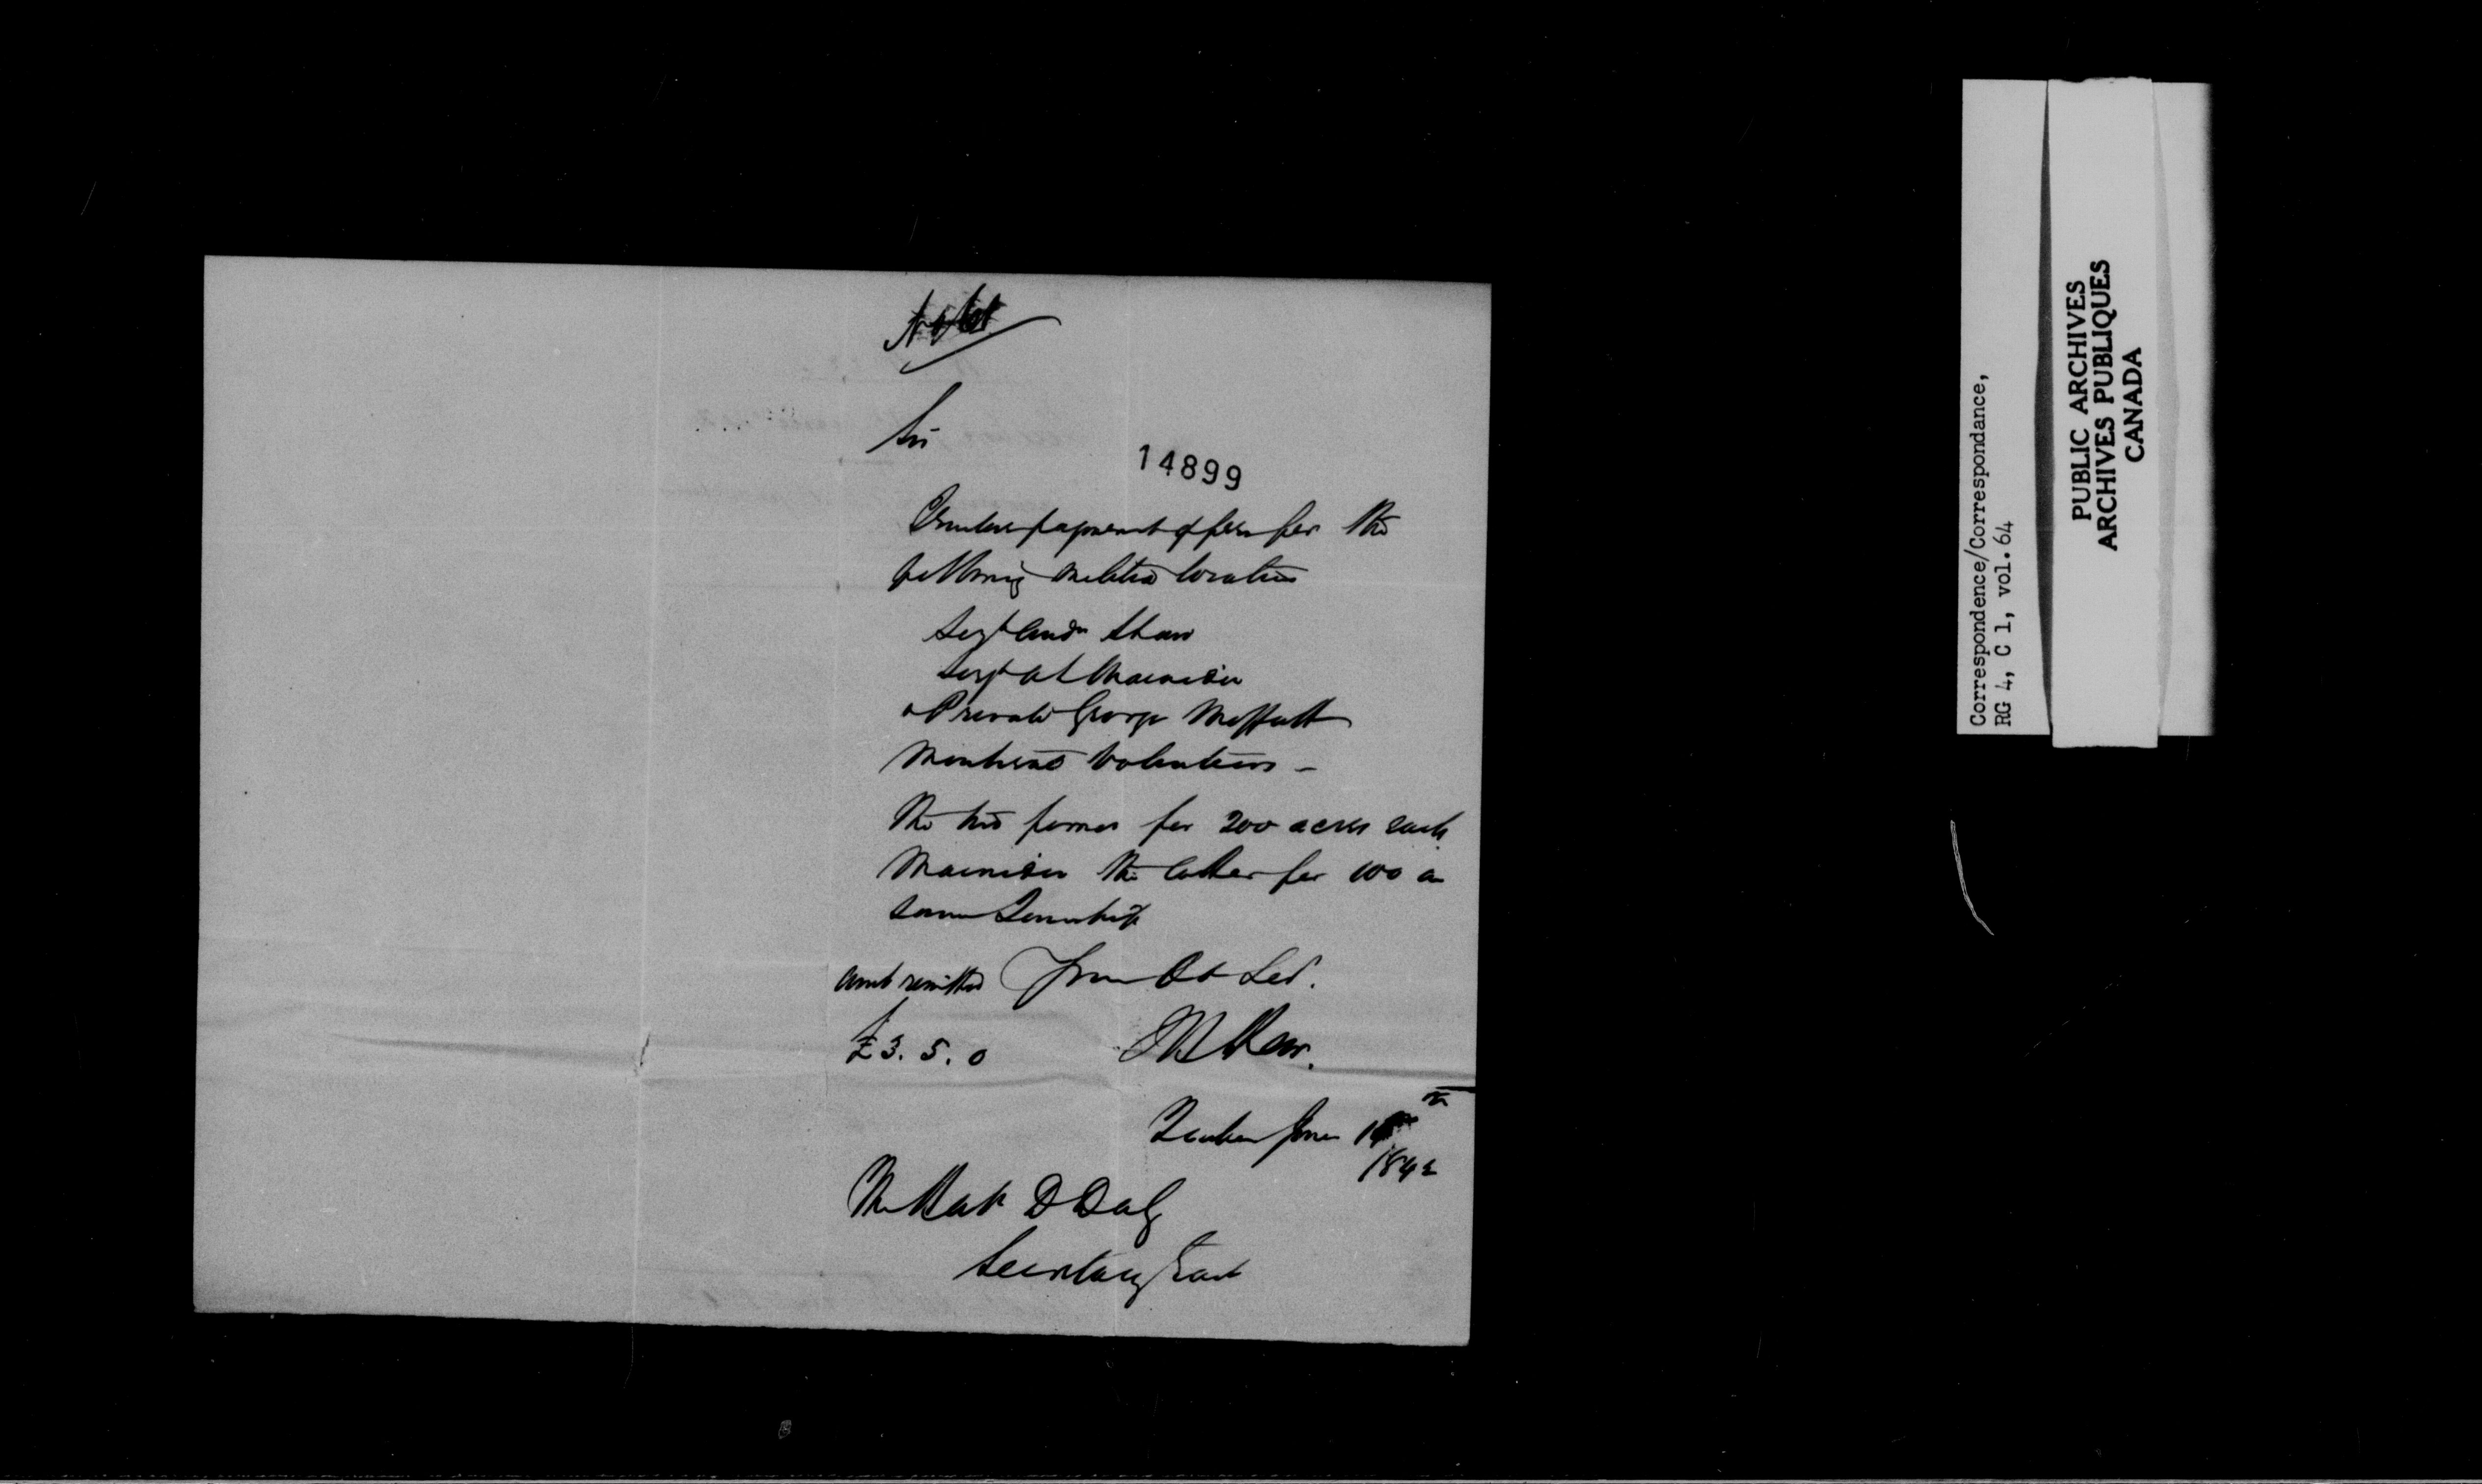 Sir
14899
payment of fees for the
following militia locations
Sergt Andw Shaw
Sergt A L Macnider
Private George Moffatt
Montreal Volunteers –
The two former for 200 acres each
Macnider the latter for 100 a
same Township
Amt remitted Your Ob Ser.
£3. 5. 0
Quebec June
1842
The Honb D Daly
Secretary East
Correspondence/Correspondance,
RG 4, C 1, vol. 64
PUBLIC ARCHIVES
ARCHIVES PUBLIQUES
CANADA